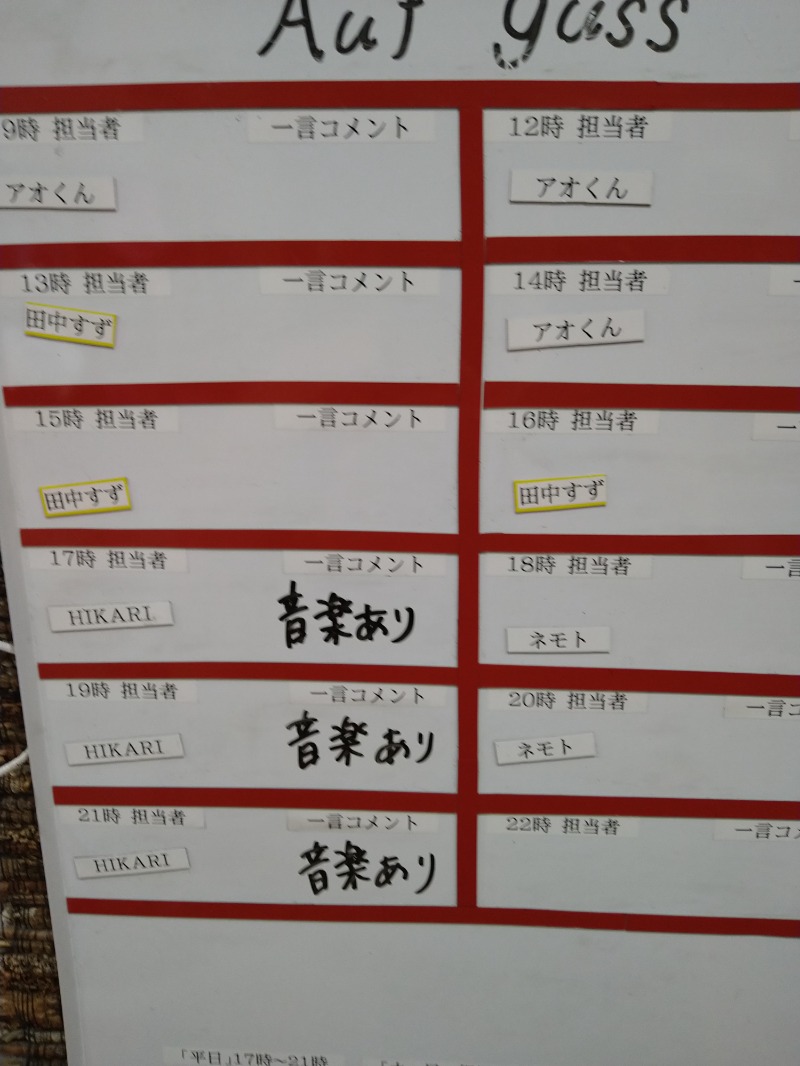 Auf guss
9時 担当者 一言コメント
アオくん
12時 担当者
アオくん
13時 担当者 一言コメント
田中すず
14時 担当者 一
アオくん
15時 担当者 一言コメント
田中すず
16時 担当者 一
田中すず
17時 担当者 一言コメント
HIKARI 音楽あり
18時 担当者 一言
ネモト
19時 担当者 一言コメント
HIKARI 音楽あり
20時 担当者 一言コ
ネモト
21時 担当者 一言コメント
HIKARI 音楽あり
22時 担当者 一言コメ
「平日」17時〜21時